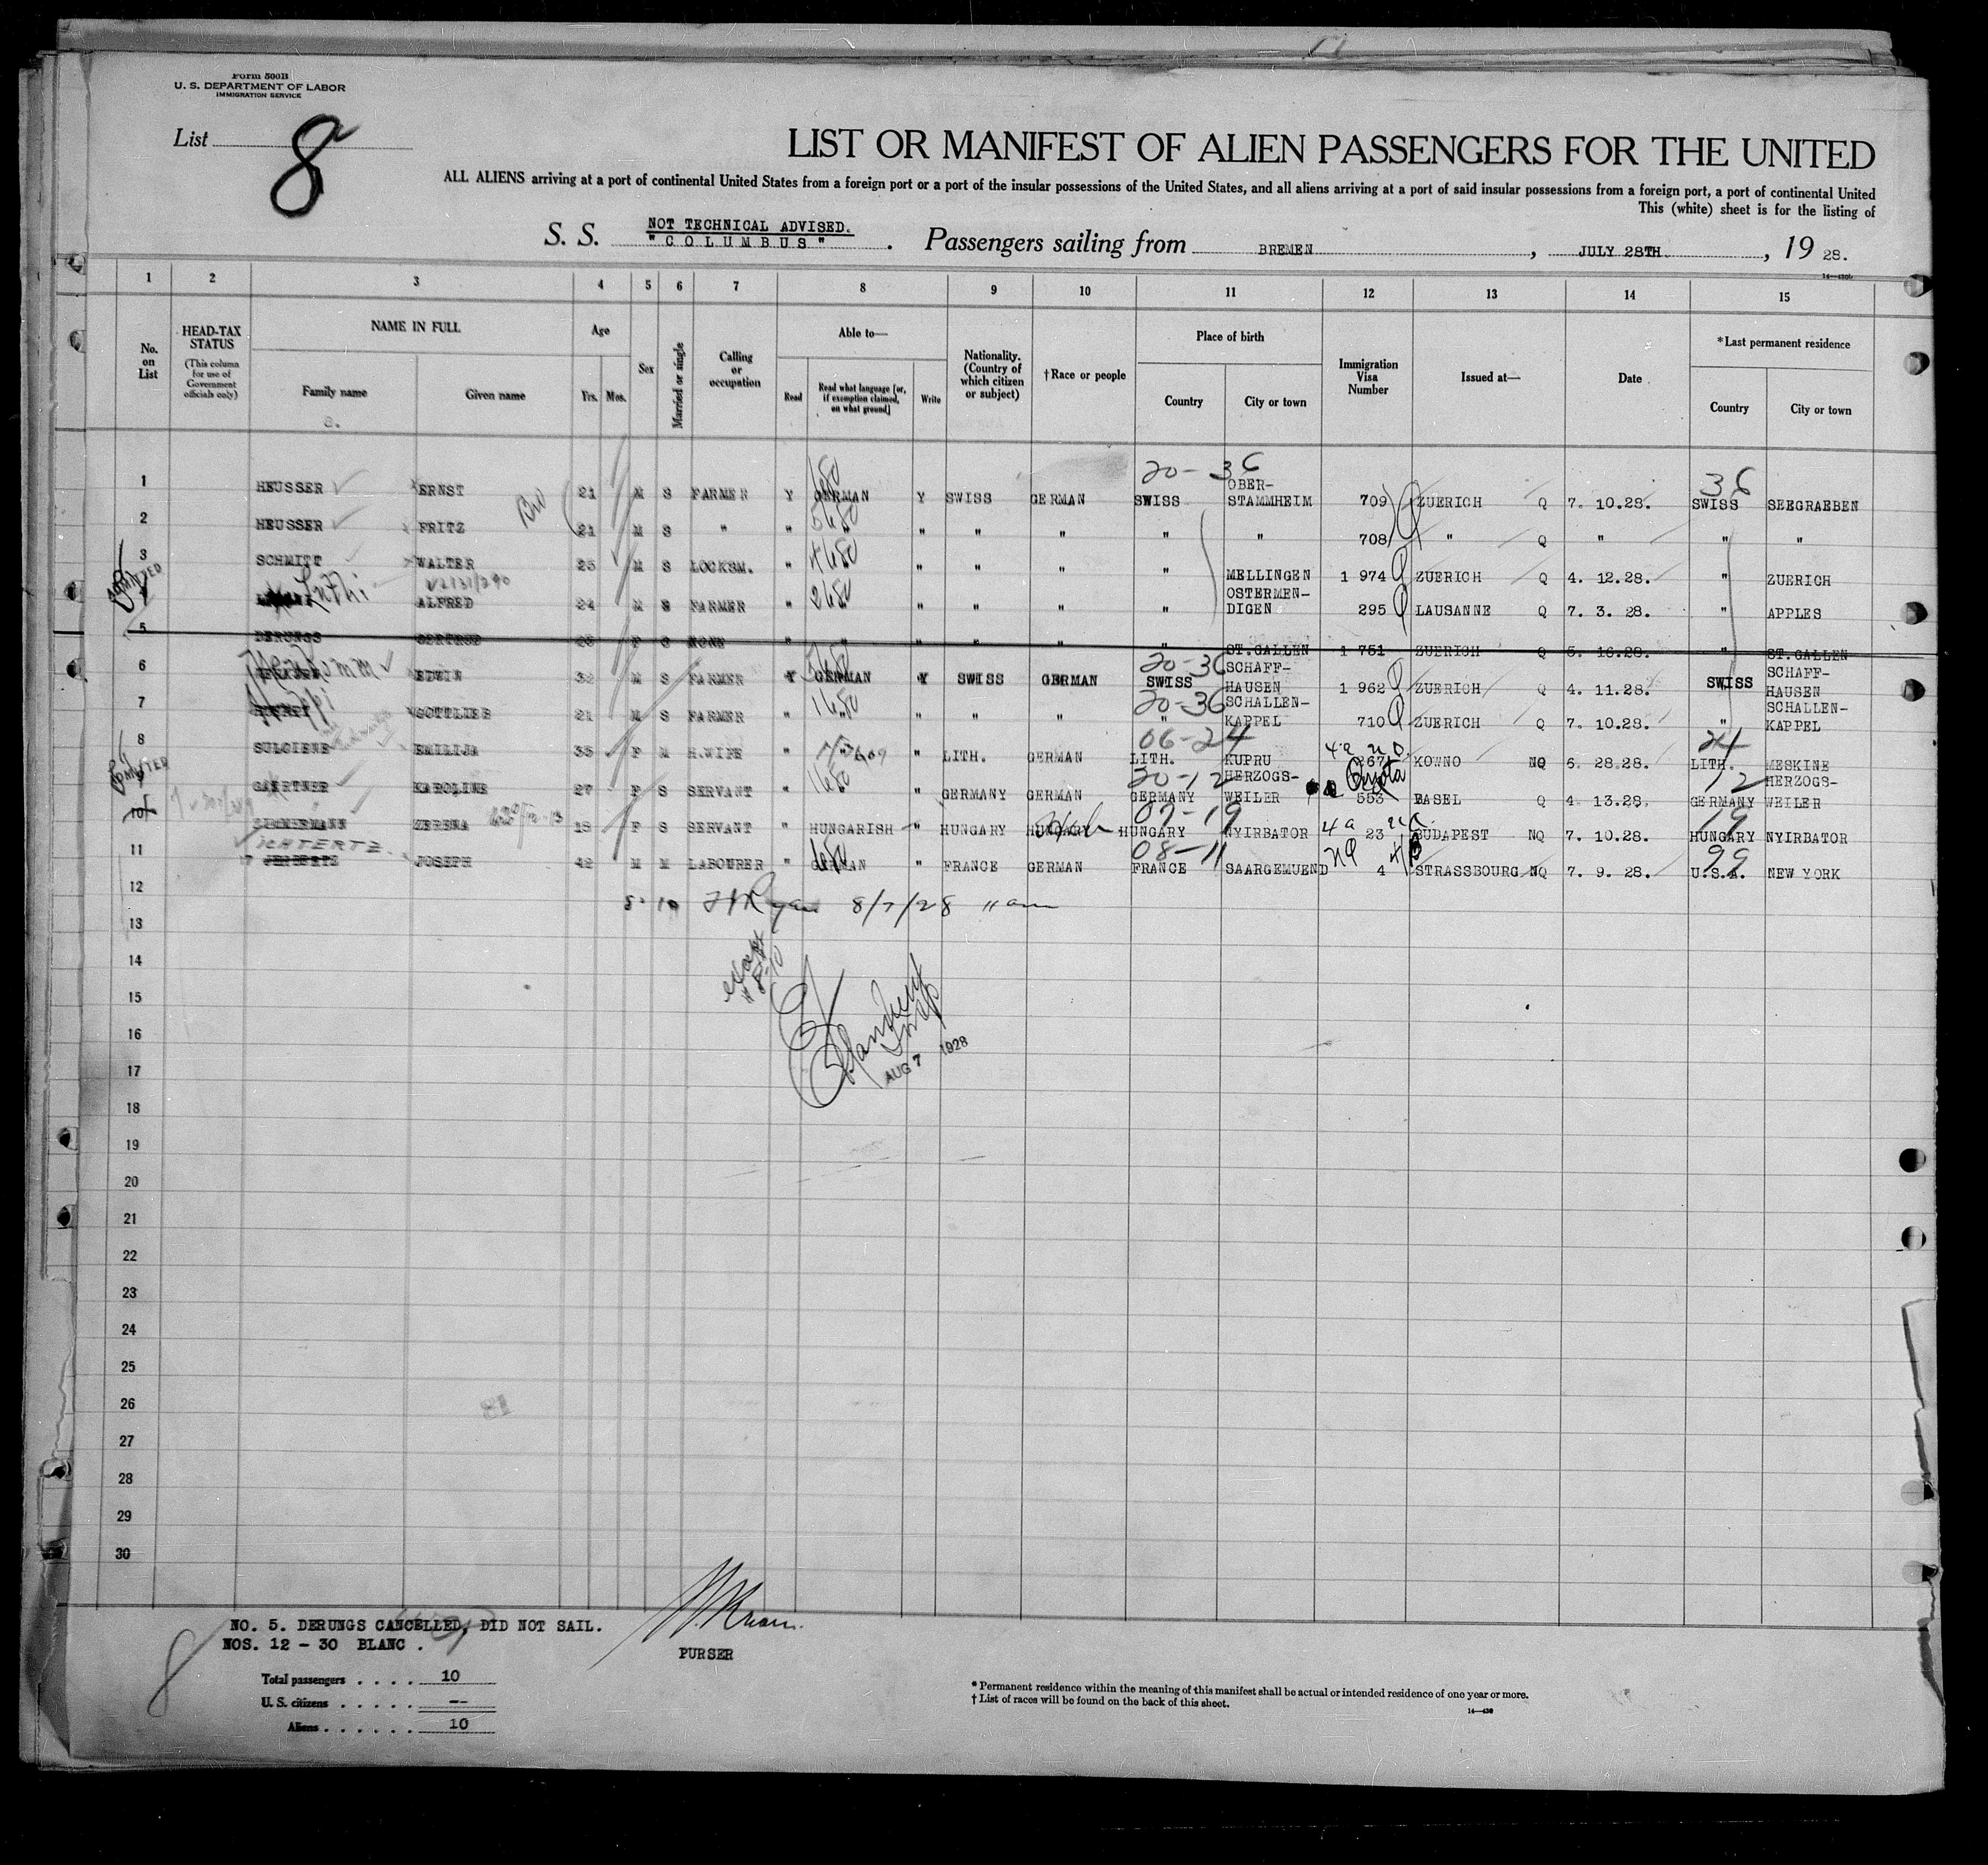 Form 500B
U. S. DEPARTMENT OF LABOR
IMMIGRATION SERVICE
List 8
LIST OR MANIFEST OF ALIEN PASSENGERS FOR THE UNITED
ALL ALIENS arriving at a port of continental United States from a foreign port or a port of the insular possessions of the United States, and all aliens arriving at a port of said insular possessions from a foreign port, a port of continental United
This (white) sheet is for the listing of
NOT TECHNICAL ADVISED.
S. S. "COLUMBUS". Passengers sailing from BREMEN, JULY 28TH, 1928.
1 2 3 4 5 6 7 8 9 10 11 12 13 14 15
No. on List
HEAD-TAX STATUS
(This column for use of Government officials only)
NAME IN FULL
Family name
Given name
Age
Yrs. Mos.
Sex
Married or single
Calling or occupation
Able to—
Read
Read what language [or, if exemption claimed, on what ground]
Write
Nationality. (Country of which citizen or subject)
†Race or people
Place of birth
Country
City or town
Immigration Visa Number
Issued at—
Date
*Last permanent residence
Country
City or town
20-36 36
1 HEUSSER ERNST 21 M S FARMER Y GERMAN Y SWISS GERMAN SWISS OBER-STAMMHEIM 709 ZUERICH Q 7. 10.28. SWISS SEEGRAEBEN
2 HEUSSER FRITZ 21 M S " " " " " " " " 708 " Q " " "
3 SCHMITT WALTER 25 M S LOCKSM. " " " " " MELLINGEN 1 974 ZUERICH Q 4. 12.28. " ZUERICH
ADMITTED
4 Luthi ALFRED 24 M S FARMER " " " " " OSTERMEN-DIGEN 295 LAUSANNE Q 7. 3. 28. " APPLES
5 DERUNGS GERTRUD F S NONE " " " " " " ST.GALLEN 1 751 ZUERICH Q 5. 16.28. " ST.GALLEN
20-36
6 EDWIN 32 M S FARMER Y GERMAN Y SWISS GERMAN SWISS SCHAFF-HAUSEN 1 962 ZUERICH Q 4. 11.28. SWISS SCHAFF-HAUSEN
20-36
7 GOTTLIEB 21 M S FARMER " " " " " " SCHALLEN-KAPPEL 710 ZUERICH Q 7. 10.28. " SCHALLEN-KAPPEL
06-24 24
8 SULCIENE EMILIJA 35 F M H.WIFE " " LITH. GERMAN LITH. KUPRU 267 KOWNO NQ 6. 28.28. LITH. MESKINE
ADMITTED
12 Quota
9 GAERTNER KAROLINE 27 F S SERVANT " " GERMANY GERMAN GERMANY HERZOGS-WEILER 553 BASEL Q 4 13.28. GERMANY HERZOGS-WEILER
07-19 19
10 ZIMMERMANN ZERENA F S SERVANT " HUNGARISH " HUNGARY HUNGARY NYIRBATOR 23 BUDAPEST NQ 7. 10.28. HUNGARY NYIRBATOR
08-11 99
11 JOSEPH 42 M M LABOURER " GERMAN " FRANCE GERMAN FRANCE SAARGEMUEND 4 STRASSBOURG NQ 7. 9. 28. U.S.A. NEW YORK
12
8/7/28 11 am
13
14
15
16
AUG 7 1928
17
18
19
20
21
22
23
24
25
26
27
28
29
30
NO. 5. DERUNGS CANCELLED, DID NOT SAIL.
NOS. 12 - 30 BLANC .
PURSER
8
Total passengers . . . . 10
U. S. citizens . . . . . —
Aliens . . . . . . 10
* Permanent residence within the meaning of this manifest shall be actual or intended residence of one year or more.
† List of races will be found on the back of this sheet.
14—430